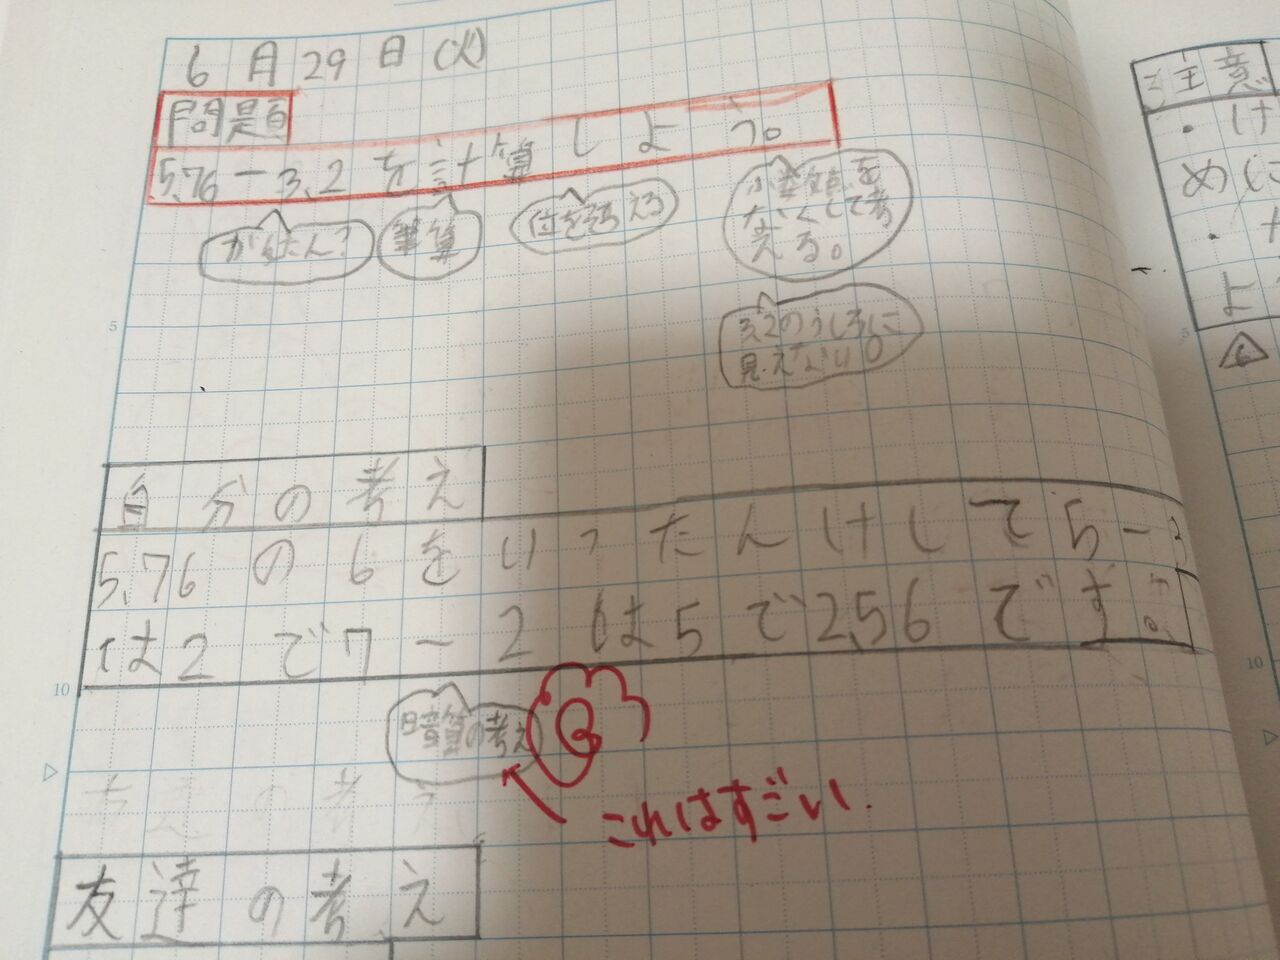 6月29日(火)
問題
5.76-3.2を計算しよう。
かんたん?
筆算
位をそろえる
小数点を
なくして考
える。
3.2のうしろに
見えない0
自分の考え
5.76の6をいったんけして5-3
は2で7-2は5で2.56です。
暗算の考え
これはすごい.
友達の考え
注意
・け
めに
・
よ
5
10
5
10